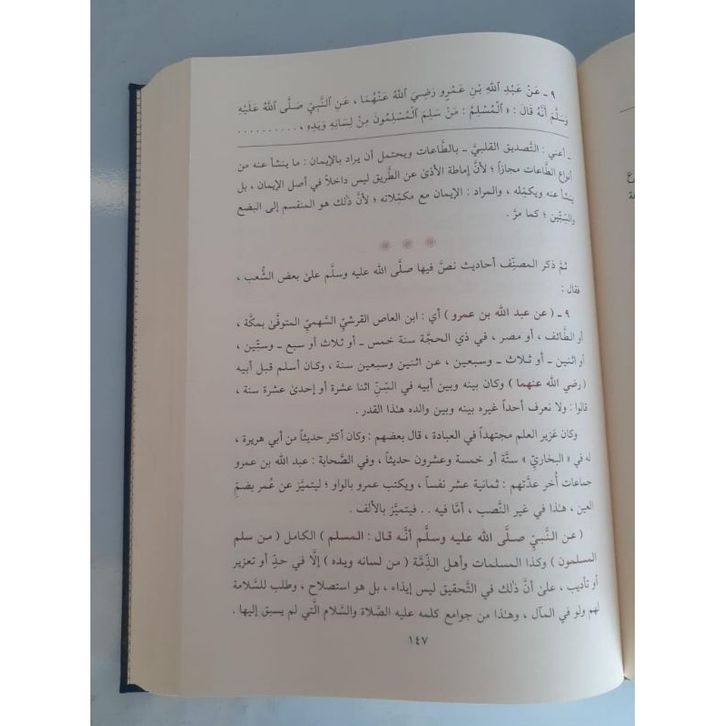 ٩ ـ عَنْ عَبْدِ اللهِ بْنِ عَمْرٍو رَضِيَ اللهُ عَنْهُمَا ، عَنِ النَّبِيِّ صَلَّى اللهُ عَلَيْهِ
وَسَلَّمَ أَنَّهُ قَالَ : « اَلْمُسْلِمُ : مَنْ سَلِمَ اَلْمُسْلِمُونَ مِنْ لِسَانِهِ وَيَدِهِ ، . . . . . . . . . .
ـ أعني : التَّصديق القلبيَّ ـ بالطَّاعات ويحتمل أن يراد بالإيمان : ما ينشأ عنه من
أنواع الطَّاعات مجازاً ؛ لأنَّ إماطة الأذىٰ عن الطَّريق ليس داخلاً في أصل الإيمان ، بل
ينشأ عنه ويكمِّله ، والمراد : الإيمان مع مكمِّلاته ؛ لأنَّ ذٰلك هو المنقسم إلى البضع
والسِّتِّين ؛ كما مرَّ .
ثمَّ ذكر المصنِّف أحاديث نصَّ فيها صلَّى الله عليه وسلَّم علىٰ بعض الشُّعب ،
فقال :
٩ ـ ( عن عبد الله بن عمرو ) أي : ابن العاص القرشيِّ السَّهميِّ المتوفَّىٰ بمكَّة ،
أو الطَّائف ، أو مصر ، في ذي الحجَّة سنة خمس ـ أو ثلاث أو سبع ـ وستِّين ،
أو اثنين ـ أو ثلاث ـ وسبعين ، عن اثنين وسبعين سنة ، وكان أسلم قبل أبيه
( رضي الله عنهما ) وكان بينه وبين أبيه في السِّنِّ اثنا عشرة أو إحدىٰ عشرة سنة ،
قالوا : ولا نعرف أحداً غيره بينه وبين والده هٰذا القدر .
وكان غزير العلم مجتهداً في العبادة ، قال بعضهم : وكان أكثر حديثاً من أبي هريرة ،
له في « البخاريِّ » ستَّة أو خمسة وعشرون حديثاً ، وفي الصَّحابة : عبد الله بن عمرو
جماعات أُخر عدَّتهم : ثمانية عشر نفساً ، ويكتب عمرو بالواو ؛ ليتميَّز عن عُمر بضمِّ
العين ، هٰذا في غير النَّصب ، أمَّا فيه . . فيتميَّز بالألف .
( عن النَّبيِّ صلَّى الله عليه وسلَّم أنَّه قال : المسلم ) الكامل ( من سلم
المسلمون ) وكذا المسلمات وأهل الذِّمَّة ( من لسانه ويده ) إلَّا في حدٍّ أو تعزير
أو تأديب ، علىٰ أنَّ ذٰلك في التَّحقيق ليس إيذاء ، بل هو استصلاح ، وطلب للسَّلامة
لهم ولو في المآل ، وهٰذا من جوامع كلمه عليه الصَّلاة والسَّلام الَّتي لم يسبق إليها .
١٤٧